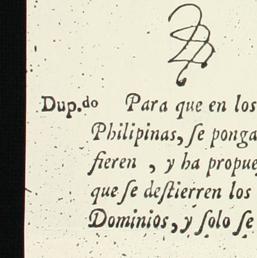 Dup.do Para que en los
Philipinas, ſe ponga
fieren , y ha propue
que ſe deſtierren los
Dominios, y ſolo ſe